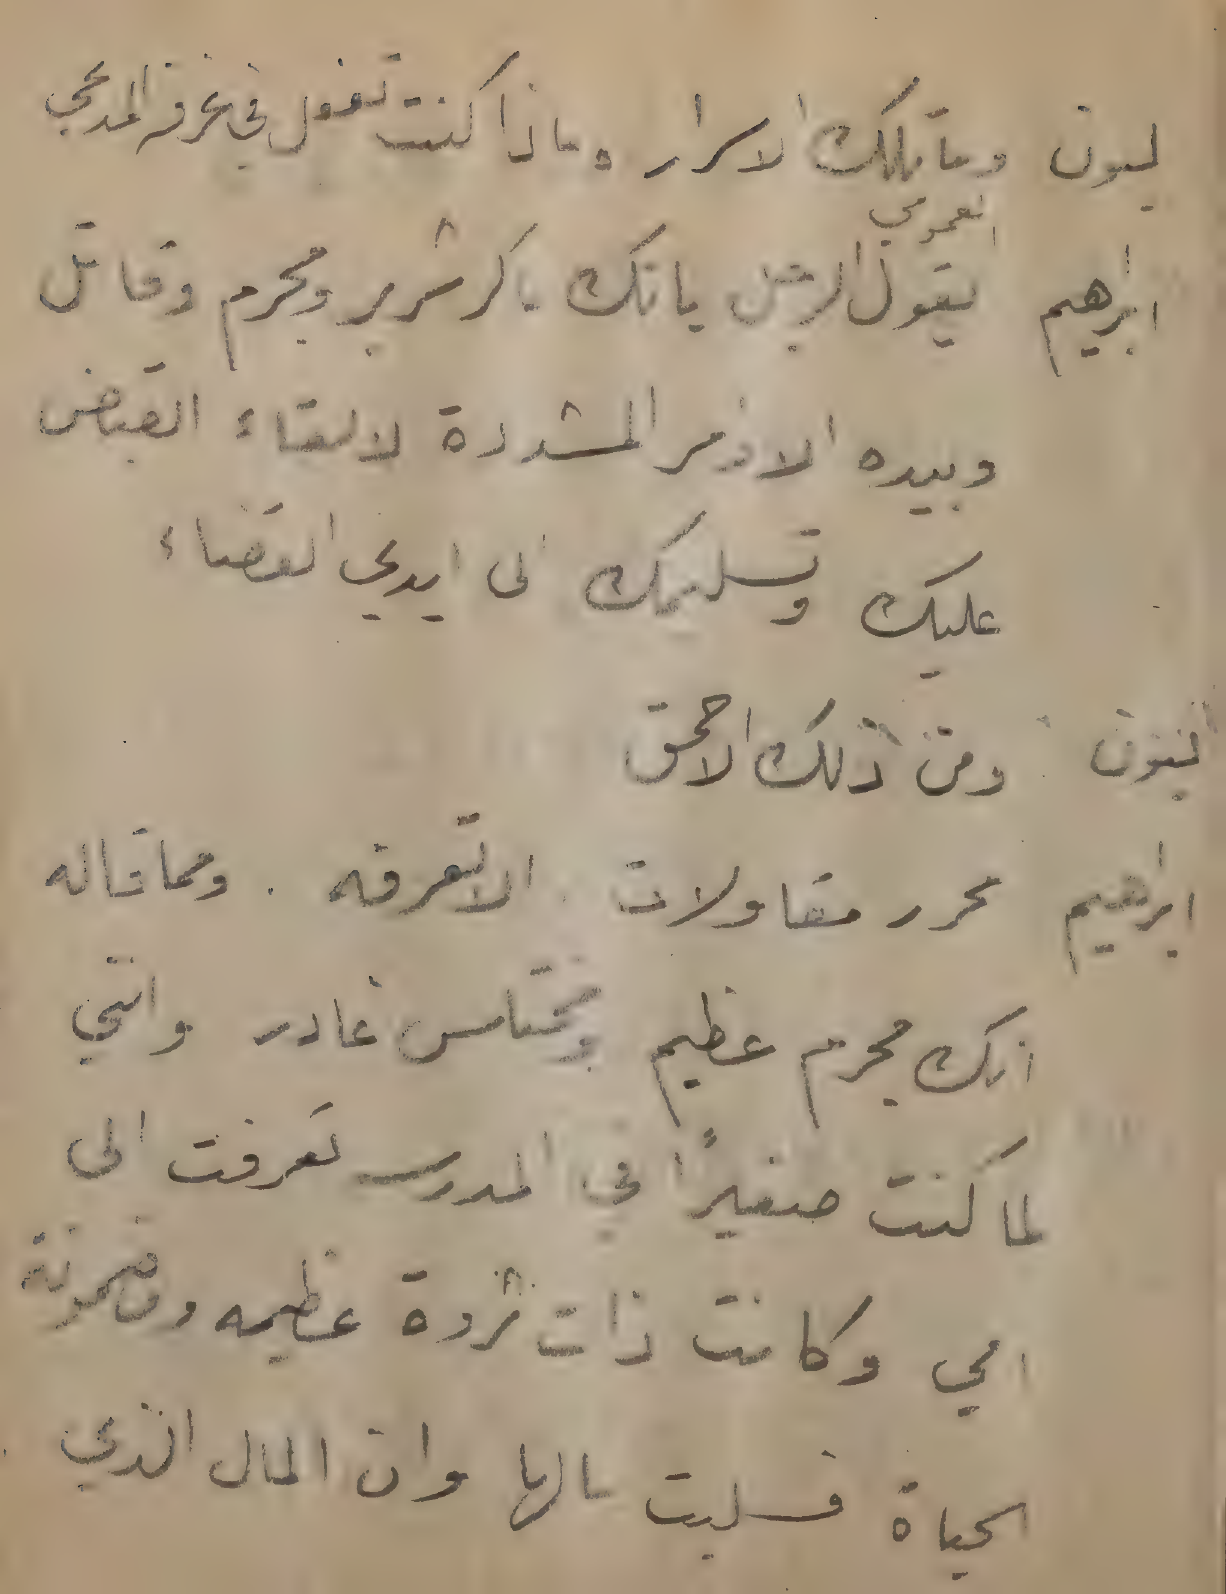 ليون وما تلك الاسرار وماذا كنت تفعل في غرفة المدعي
العمومي
ابراهيم يقول الرجل بانك ماكر شرير ومجرم وقاتل
وبيده الاوامر المشددة لالقاء القبض
عليك وتسليمك الى ايدي القضاء
ليون ومن ذلك الاحمق
ابراهيم محرر مقاولات . الا تعرفه . ومما قاله
انك مجرم عظيم ومختلس غادر وانني
لما كنت صغيرًا في المدرسه تعرفت الى
امي وكانت ذات ثروة عظيمه ومضمونة
الحياة فسلبت مالها وان المال الذي